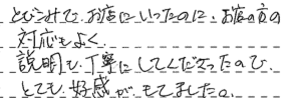 とびこみで、お店にいったのに、お店の方の
対応もよく、
説明も、丁寧にしてくださったので、
とても好感がもてました。